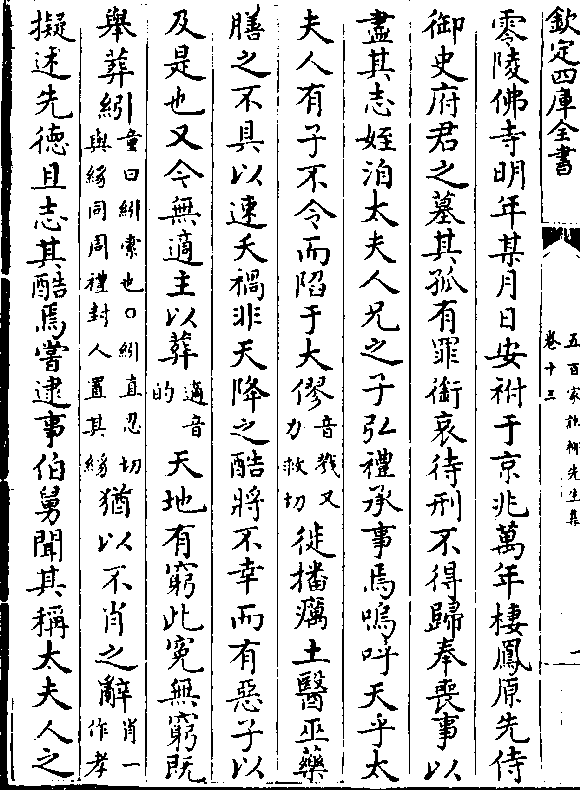 欽定四庫全書
五百家注柳先生集
卷十三
一
零陵佛寺明年某月日安祔于京兆萬年棲鳳原先侍
御史府君之墓其孤有罪銜哀待刑不得歸奉喪事以
盡其志姪洎太夫人兄之子弘禮承事焉嗚呼天乎太
夫人有子不令而陷于大僇音戮又力救切徙播癘土醫巫藥
膳之不具以速夭禍非天降之酷將不幸而有惡子以
及是也又今無適主以葬適音的天地有窮此寃無窮既
舉葬紖童曰紖索也○紖直忍切與絼同周禮封人置其絼猶以不肖之辭肖一作孝
擬述先德且志其酷焉嘗逮事伯舅聞其稱太夫人之